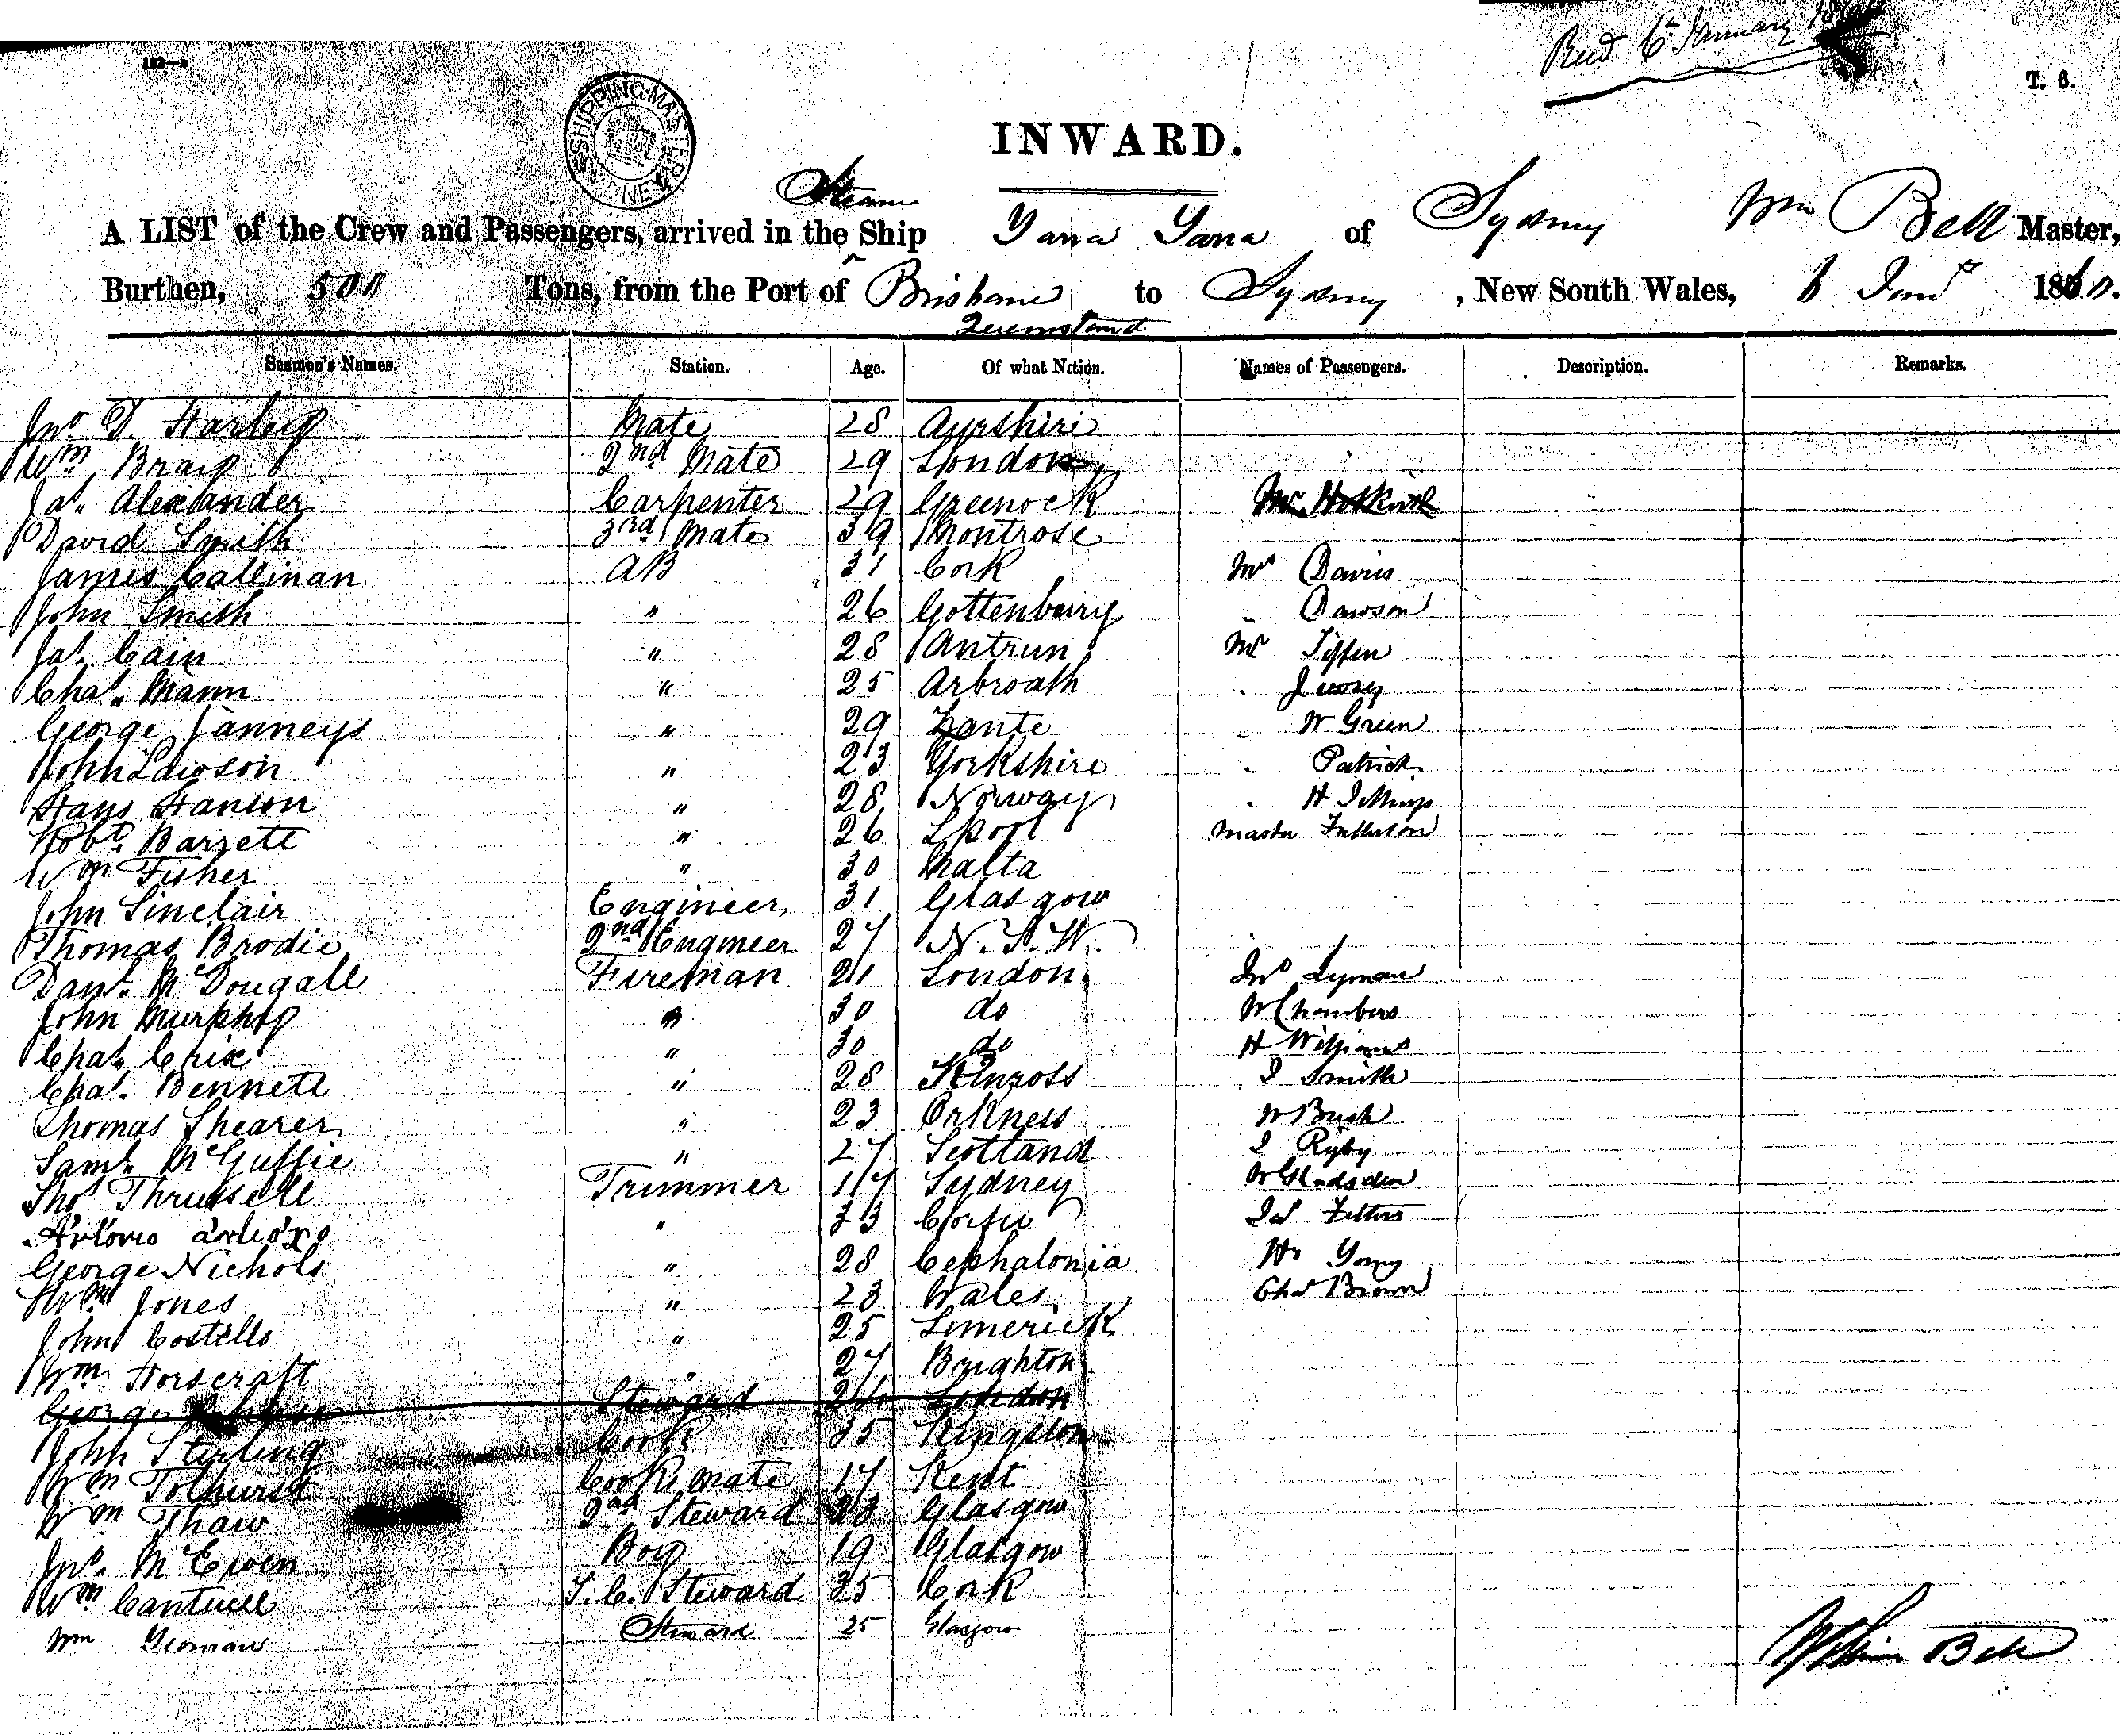 Recd 6th January
T. 6.
SHIPPING MASTER
INWARD.
Steam
A LIST of the Crew and Passengers, arrived in the Ship Yarra Yarra of Sydney Wm Bell Master,
Burthen, 500 Tons, from the Port of Brisbane to Sydney, New South Wales, 6 Jany 1860.
Queensland
Seamen's Names. Station. Age. Of what Nation. Names of Passengers. Description. Remarks.
Jno T. Mate 28 Ayrshire
Wm 2nd Mate 29 London
Jas. Alexander Carpenter 29 Greenock
David Smith 3rd Mate 39 Montrose
James Callinan AB 31 Cork Mrs Davies
John Smith " 26 Gottenburg " Dawson
Jas. Cain " 28 Antrim Mr
Chas. Mann " 25 Arbroath "
George Janneys " 29 Zante " W Green
John Lawson " 23 Yorkshire " Patrick
Hans Hanson " 28 Norway " H
Robt. Barrett " 26 Lpool Master Fullerton
Wm Fisher " 30 Malta
John Sinclair Engineer 31 Glasgow
Thomas Brodie 2nd Engineer 27 N.S.W.
Danl. McDougall Fireman 21 London Jno Lyman
John Murphy " 30 do W Chambers
Chas. Crix " 30 do H Williams
Chas. Bennett " 28 Kinross J Smith
Thomas Shearer " 23 Orkness W Bush
Saml. McGuffie " 27 Scotland J Ryby
Thos Thrussell Trimmer 17 Sydney W
" 33 Corfu Jas
George Nichols " 28 Cephalonia Hy Young
Wm Jones " 23 Wales Chas Brown
John Costello " 25 Limerick
Wm Horscraft " 27 Brighton
George Steward 26 London
John Sterling Cook 35 Kingston
Wm Tolhurst Cooks mate 17 Kent
Wm Thaw 2nd Steward 23 Glasgow
Jno. McEwen Boy 19 Glasgow
Wm Cantwell F.C. Steward 35 Cork
Wm Yeoman Steward 25 Glasgow
William Bell